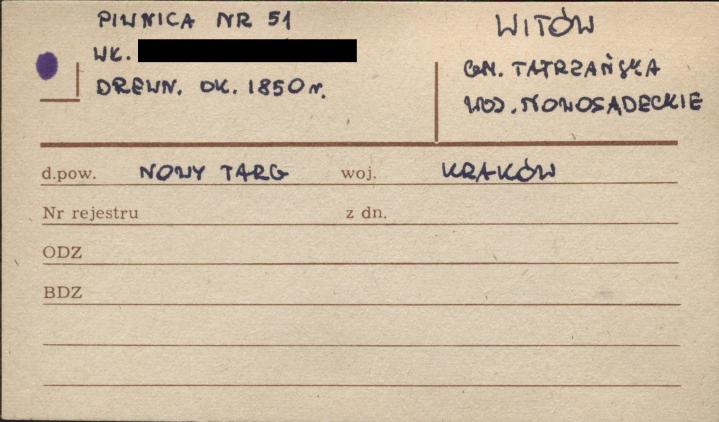 PIWNICA NR 51
WŁ.
DREWN. OK. 1850 r.
WITÓW
GM. TATRZAŃSKA
WOJ. NOWOSĄDECKIE
d.pow. NOWY TARG woj. KRAKÓW
Nr rejestru z dn.
ODZ
BDZ